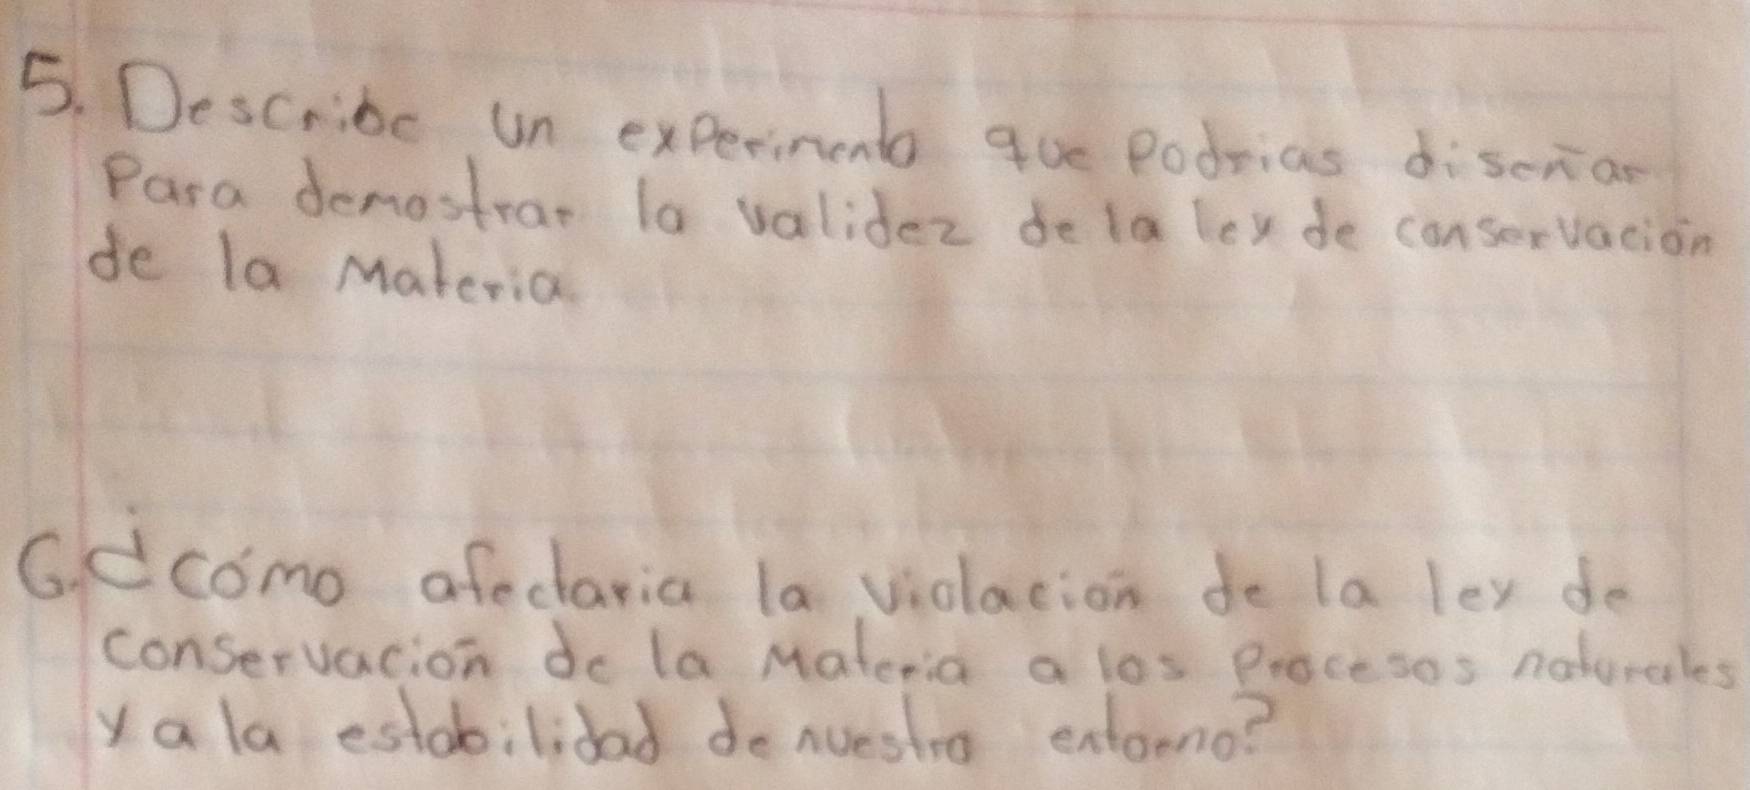 5. Describe un experimento que podrias diseñar
Para demostrar la validez de la ley de conservación
de la Materia.
6. ¿cómo afectaria la violación de la ley de
conservación de la Materia a los procesos naturales
y a la estabilidad de nuestro entorno?